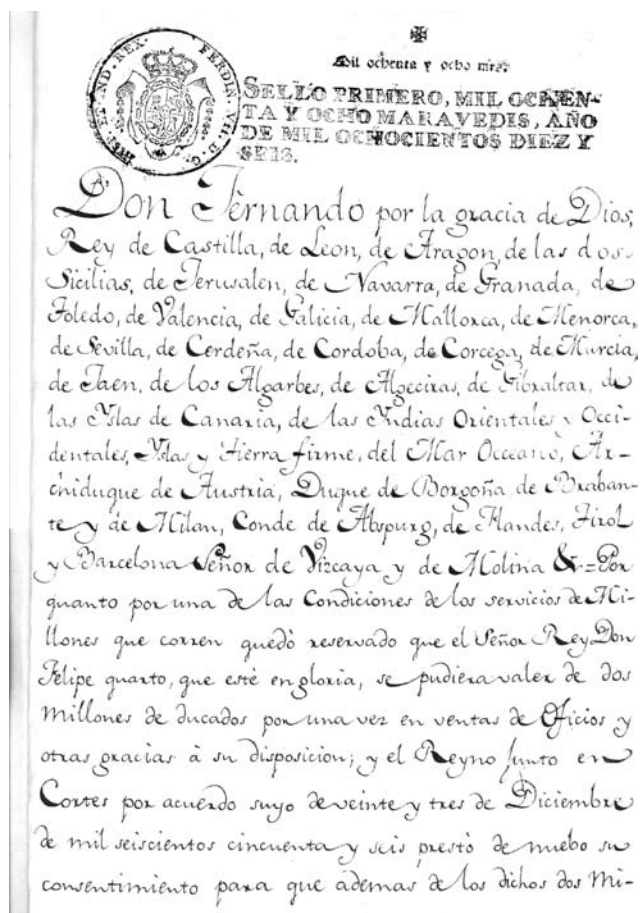 HISP. ET IND. REX. FERDIN. VII. D. G.
Mil ochenta y ocho mrs.
SELLO PRIMERO, MIL OCHEN-
TA Y OCHO MARAVEDIS, AÑO
DE MIL OCHOCIENTOS DIEZ Y
SEIS.
Don Fernando por la gracia de Dios,
Rey de Castilla, de Leon, de Aragon, de las dos
Sicilias, de Jerusalen, de Navarra, de Granada, de
Toledo, de Valencia, de Galicia, de Mallorca, de Menorca,
de Sevilla, de Cerdeña, de Cordoba, de Corcega, de Murcia,
de Jaen, de los Algarbes, de Algeciras, de Gibraltar, de
las Yslas de Canaria, de las Yndias Orientales y Occi-
dentales, Yslas y Tierra firme, del Mar Occeano, Ar-
chiduque de Austria, Duque de Borgoña, de Braban-
te y de Milan, Conde de Abspurg, de Flandes, Tirol
y Barcelona Señor de Vizcaya y de Molina &ª=Por
quanto por una de las Condiciones de los servicios de Mi-
llones que corren quedó reservado que el Señor Rey Don
Felipe quarto, que esté en gloria, se pudiera valer de dos
Millones de ducados por una vez en ventas de Oficios y
otras gracias à su disposicion; y el Reyno junto en
Cortes por acuerdo suyo de veinte y tres de Diciembre
de mil seiscientos cincuenta y seis prestó de nuebo su
consentimiento para que ademas de los dichos dos Mi-